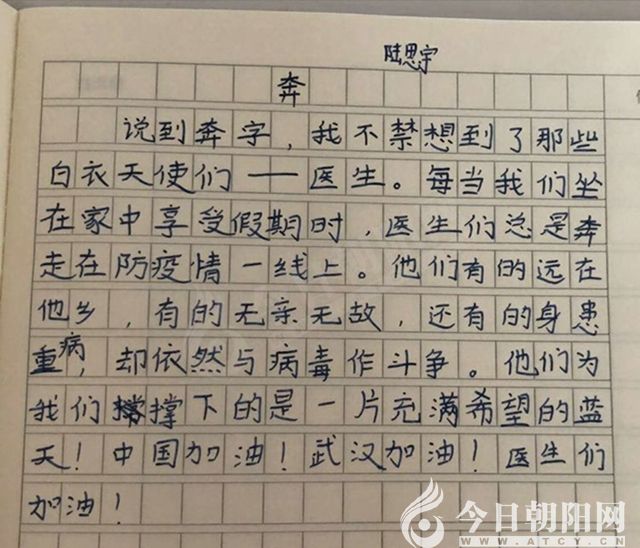 陆思宇
奔
说到奔字，我不禁想到了那些
白衣天使们——医生。每当我们坐
在家中享受假期时，医生们总是奔
走在防疫情一线上。他们有的远在
他乡，有的无亲无故，还有的身患
重病，却依然与病毒作斗争。他们为
我们撑下的是一片充满希望的蓝
天！中国加油！武汉加油！医生们
加油！
今日朝阳网
WWW.ATCY.CN